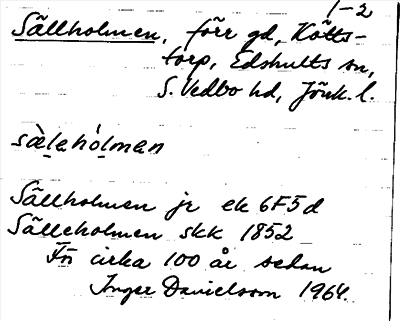 1-2
Sällholmen, förr gd, Kötts-
torp, Edshults sn,
S. Vedbo hd, Jönk. l.
sä̀lehólmen
Sällholmen jr ek 6F5d
Sälleholmen skk 1852
För cirka 100 år sedan
Inger Danielsson 1964.